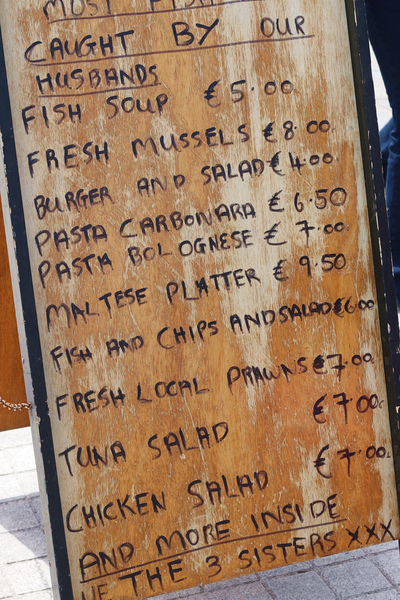 MOST FISH
CAUGHT BY OUR
HUSBANDS
FISH SOUP €5.00
FRESH MUSSELS €8.00
BURGER AND SALAD €4.00
PASTA CARBONARA €6.50
PASTA BOLOGNESE €7.00
MALTESE PLATTER €9.50
FISH AND CHIPS AND SALAD €6.00
FRESH LOCAL PRAWNS €7.00
TUNA SALAD €7.00
CHICKEN SALAD €7.00
AND MORE INSIDE
THE 3 SISTERS XXX